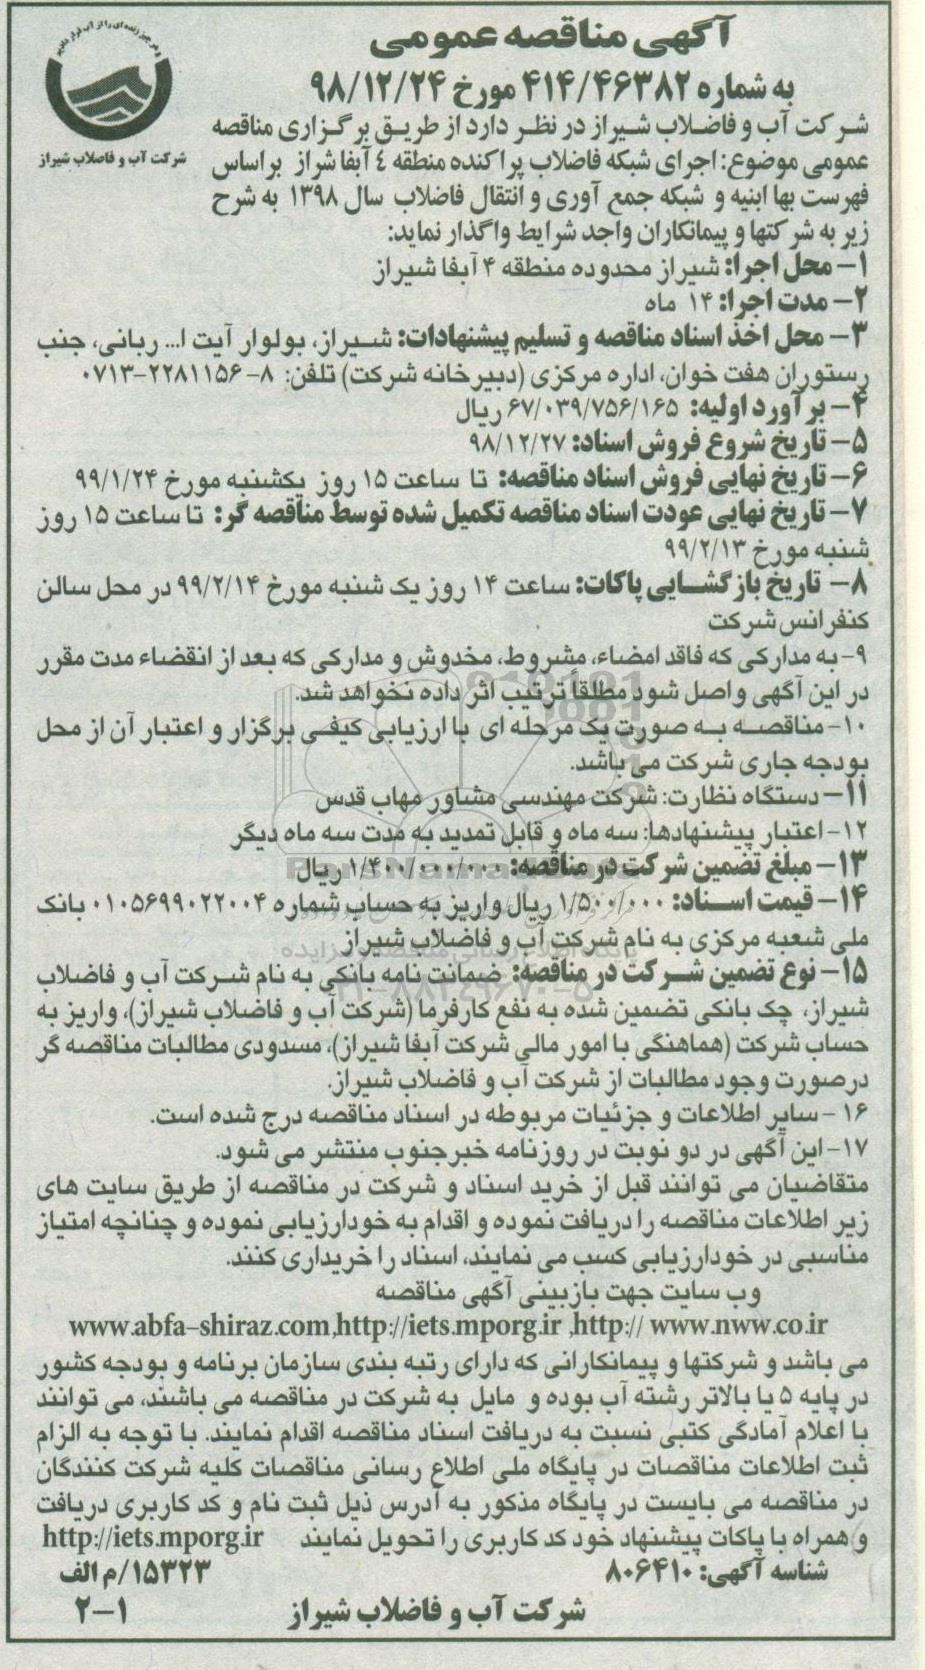 آگهی مناقصه عمومی
به شماره ۴۱۴/۴۶۳۸۲ مورخ ۹۸/۱۲/۲۴
شرکت آب و فاضلاب شیراز
شرکت آب و فاضلاب شیراز در نظر دارد از طریق برگزاری مناقصه
عمومی موضوع: اجرای شبکه فاضلاب پراکنده منطقه ٤ آبفا شراز براساس
فهرست بها ابنیه و شبکه جمع آوری و انتقال فاضلاب سال ۱۳۹۸ به شرح
زیر به شرکتها و پیمانکاران واجد شرایط واگذار نماید:
۱- محل اجرا: شیراز محدوده منطقه ۴ آبفا شیراز
۲- مدت اجرا: ۱۴ ماه
۳- محل اخذ اسناد مناقصه و تسلیم پیشنهادات: شیراز، بولوار آیت ا... ربانی، جنب
رستوران هفت خوان، اداره مرکزی (دبیرخانه شرکت) تلفن: ۸-۲۲۸۱۱۵۶-۰۷۱۳
۴- برآورد اولیه: ۶۷/۰۳۹/۷۵۶/۱۶۵ ریال
۵- تاریخ شروع فروش اسناد: ۹۸/۱۲/۲۷
۶- تاریخ نهایی فروش اسناد مناقصه: تا ساعت ۱۵ روز یکشنبه مورخ ۹۹/۱/۲۴
۷- تاریخ نهایی عودت اسناد مناقصه تکمیل شده توسط مناقصه گر: تا ساعت ۱۵ روز
شنبه مورخ ۹۹/۲/۱۳
۸- تاریخ بازگشایی پاکات: ساعت ۱۴ روز یک شنبه مورخ ۹۹/۲/۱۴ در محل سالن
کنفرانس شرکت
۹- به مدارکی که فاقد امضاء، مشروط، مخدوش و مدارکی که بعد از انقضاء مدت مقرر
در این آگهی واصل شود مطلقاً ترتیب اثر داده نخواهد شد.
۱۰- مناقصه به صورت یک مرحله ای با ارزیابی کیفی برگزار و اعتبار آن از محل
بودجه جاری شرکت می باشد.
۱۱- دستگاه نظارت: شرکت مهندسی مشاور مهاب قدس
۱۲- اعتبار پیشنهادها: سه ماه و قابل تمدید به مدت سه ماه دیگر
۱۳- مبلغ تضمین شرکت در مناقصه: ۱/۴۰۰/۰۰۰/۰۰۰ ریال
۱۴- قیمت اسناد: ۱/۵۰۰/۰۰۰ ریال واریز به حساب شماره ۰۱۰۵۶۹۹۰۲۲۰۰۴ بانک
ملی شعبه مرکزی به نام شرکت آب و فاضلاب شیراز
۱۵- نوع تضمین شرکت در مناقصه: ضمانت نامه بانکی به نام شرکت آب و فاضلاب
شیراز، چک بانکی تضمین شده به نفع کارفرما (شرکت آب و فاضلاب شیراز)، واریز به
حساب شرکت (هماهنگی با امور مالی شرکت آبفا شیراز)، مسدودی مطالبات مناقصه گر
درصورت وجود مطالبات از شرکت آب و فاضلاب شیراز.
۱۶ - سایر اطلاعات و جزئیات مربوطه در اسناد مناقصه درج شده است.
۱۷- این آگهی در دو نوبت در روزنامه خبرجنوب منتشر می شود.
متقاضیان می توانند قبل از خرید اسناد و شرکت در مناقصه از طریق سایت های
زیر اطلاعات مناقصه را دریافت نموده و اقدام به خودارزیابی نموده و چنانچه امتیاز
مناسبی در خودارزیابی کسب می نمایند، اسناد را خریداری کنند.
وب سایت جهت بازبینی آگهی مناقصه
www.abfa-shiraz.com,http://iets.mporg.ir ,http:// www.nww.co.ir
می باشد و شرکتها و پیمانکارانی که دارای رتبه بندی سازمان برنامه و بودجه کشور
در پایه ۵ یا بالاتر رشته آب بوده و مایل به شرکت در مناقصه می باشند، می توانند
با اعلام آمادگی کتبی نسبت به دریافت اسناد مناقصه اقدام نمایند. با توجه به الزام
ثبت اطلاعات مناقصات در پایگاه ملی اطلاع رسانی مناقصات کلیه شرکت کنندگان
در مناقصه می بایست در پایگاه مذکور به آدرس ذیل ثبت نام و کد کاربری دریافت
و همراه با پاکات پیشنهاد خود کد کاربری را تحویل نمایند http://iets.mporg.ir
شناسه آگهی: ۸۰۶۴۱۰ ۱۵۳۲۳/م الف
شرکت آب و فاضلاب شیراز ۲-۱